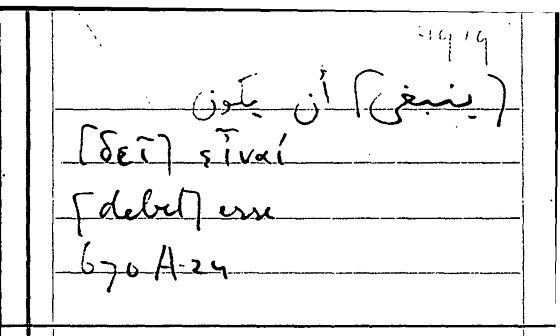 [ينبغي] أن يكون
[δεῖ] εἶναί
[debet] esse
670 A-24